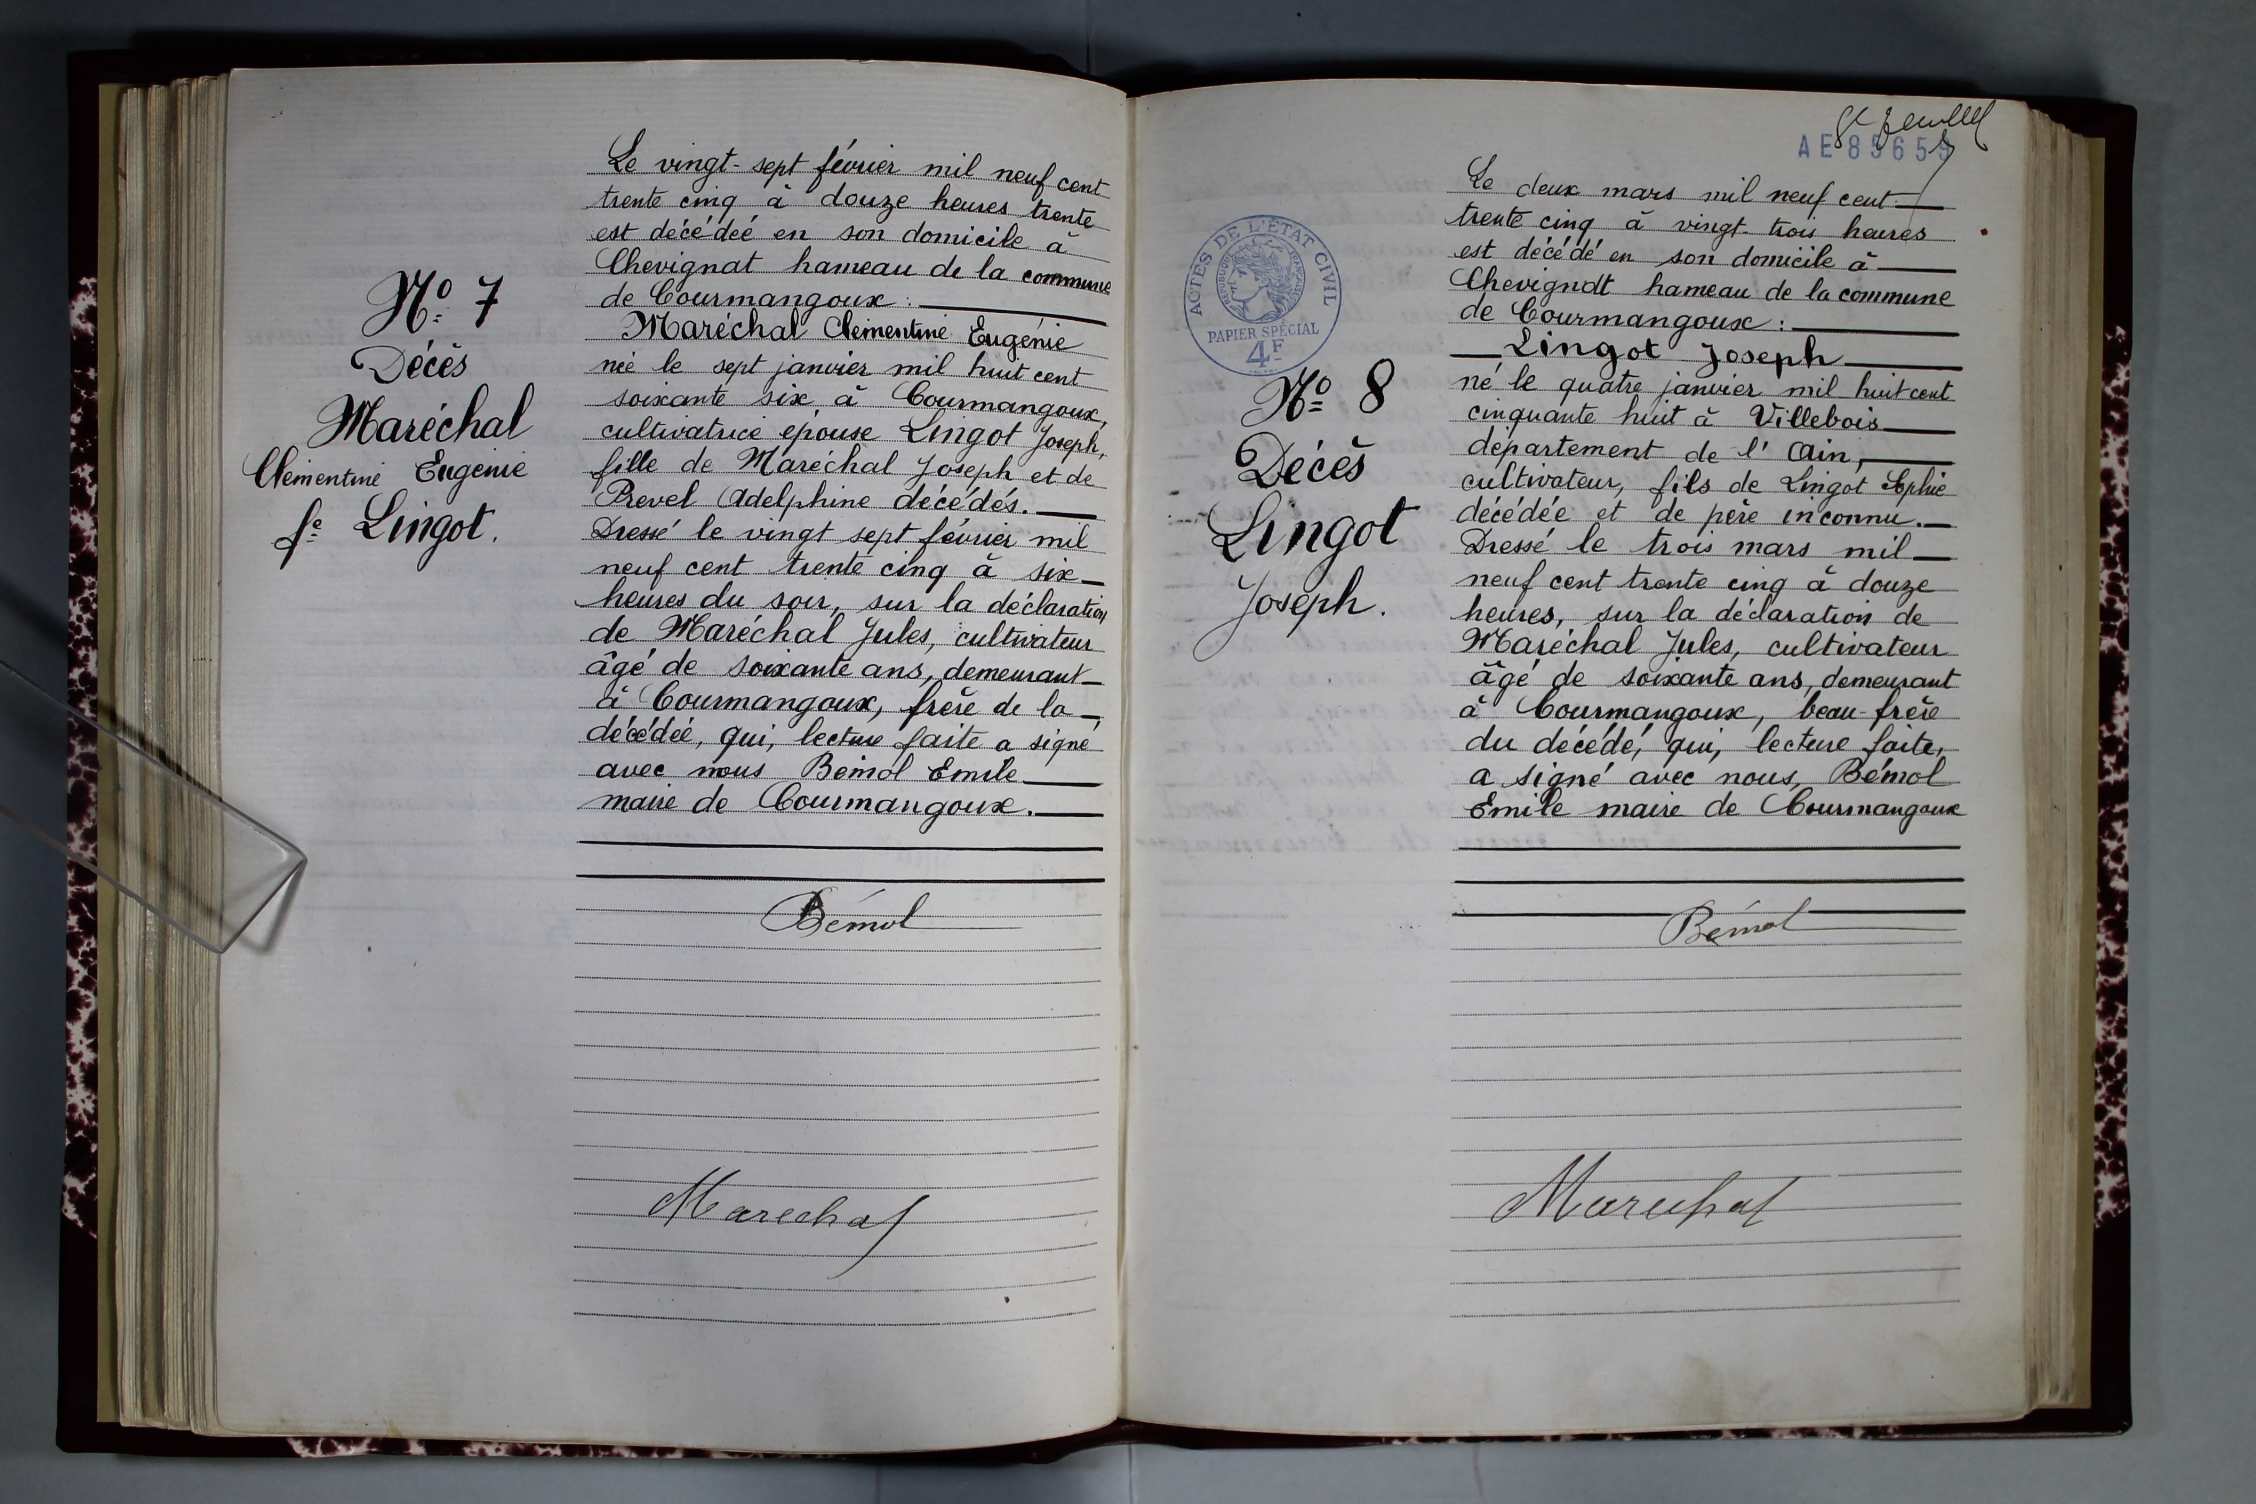 N° 7
Décès
Maréchal
Clémentine Eugénie
fe Lingot.
Le vingt-sept février mil neuf cent
trente cinq à douze heures trente
est décédée en son domicile à
Chevignat hameau de la commune
de Courmangoux :
Maréchal Clémentine Eugénie
née le sept janvier mil huit cent
soixante six à Courmangoux,
cultivatrice épouse Lingot Joseph,
fille de Maréchal Joseph et de
Prevel Adelphine décédés.
Dressé le vingt sept février mil
neuf cent trente cinq à six
heures du soir, sur la déclaration
de Maréchal Jules, cultivateur
âgé de soixante ans, demeurant
à Courmangoux, frère de la
décédée, qui, lecture faite a signé
avec nous Bémol Emile
maire de Courmangoux.
Bémol
Marechal
8e feuillet
AE 8565
ACTES DE L'ÉTAT CIVIL
RÉPUBLIQUE FRANÇAISE
PAPIER SPÉCIAL
4F
N° 8
Décès
Lingot
Joseph.
Le deux mars mil neuf cent
trente cinq à vingt-trois heures
est décédé en son domicile à
Chevignat hameau de la commune
de Courmangoux :
Lingot Joseph
né le quatre janvier mil huit cent
cinquante huit à Villebois
département de l'Ain,
cultivateur, fils de Lingot Sophie
décédée et de père inconnu.
Dressé le trois mars mil
neuf cent trente cinq à douze
heures, sur la déclaration de
Maréchal Jules, cultivateur
âgé de soixante ans, demeurant
à Courmangoux, beau-frère
du décédé, qui, lecture faite,
a signé avec nous, Bémol
Emile maire de Courmangoux
Bémol
Marechal